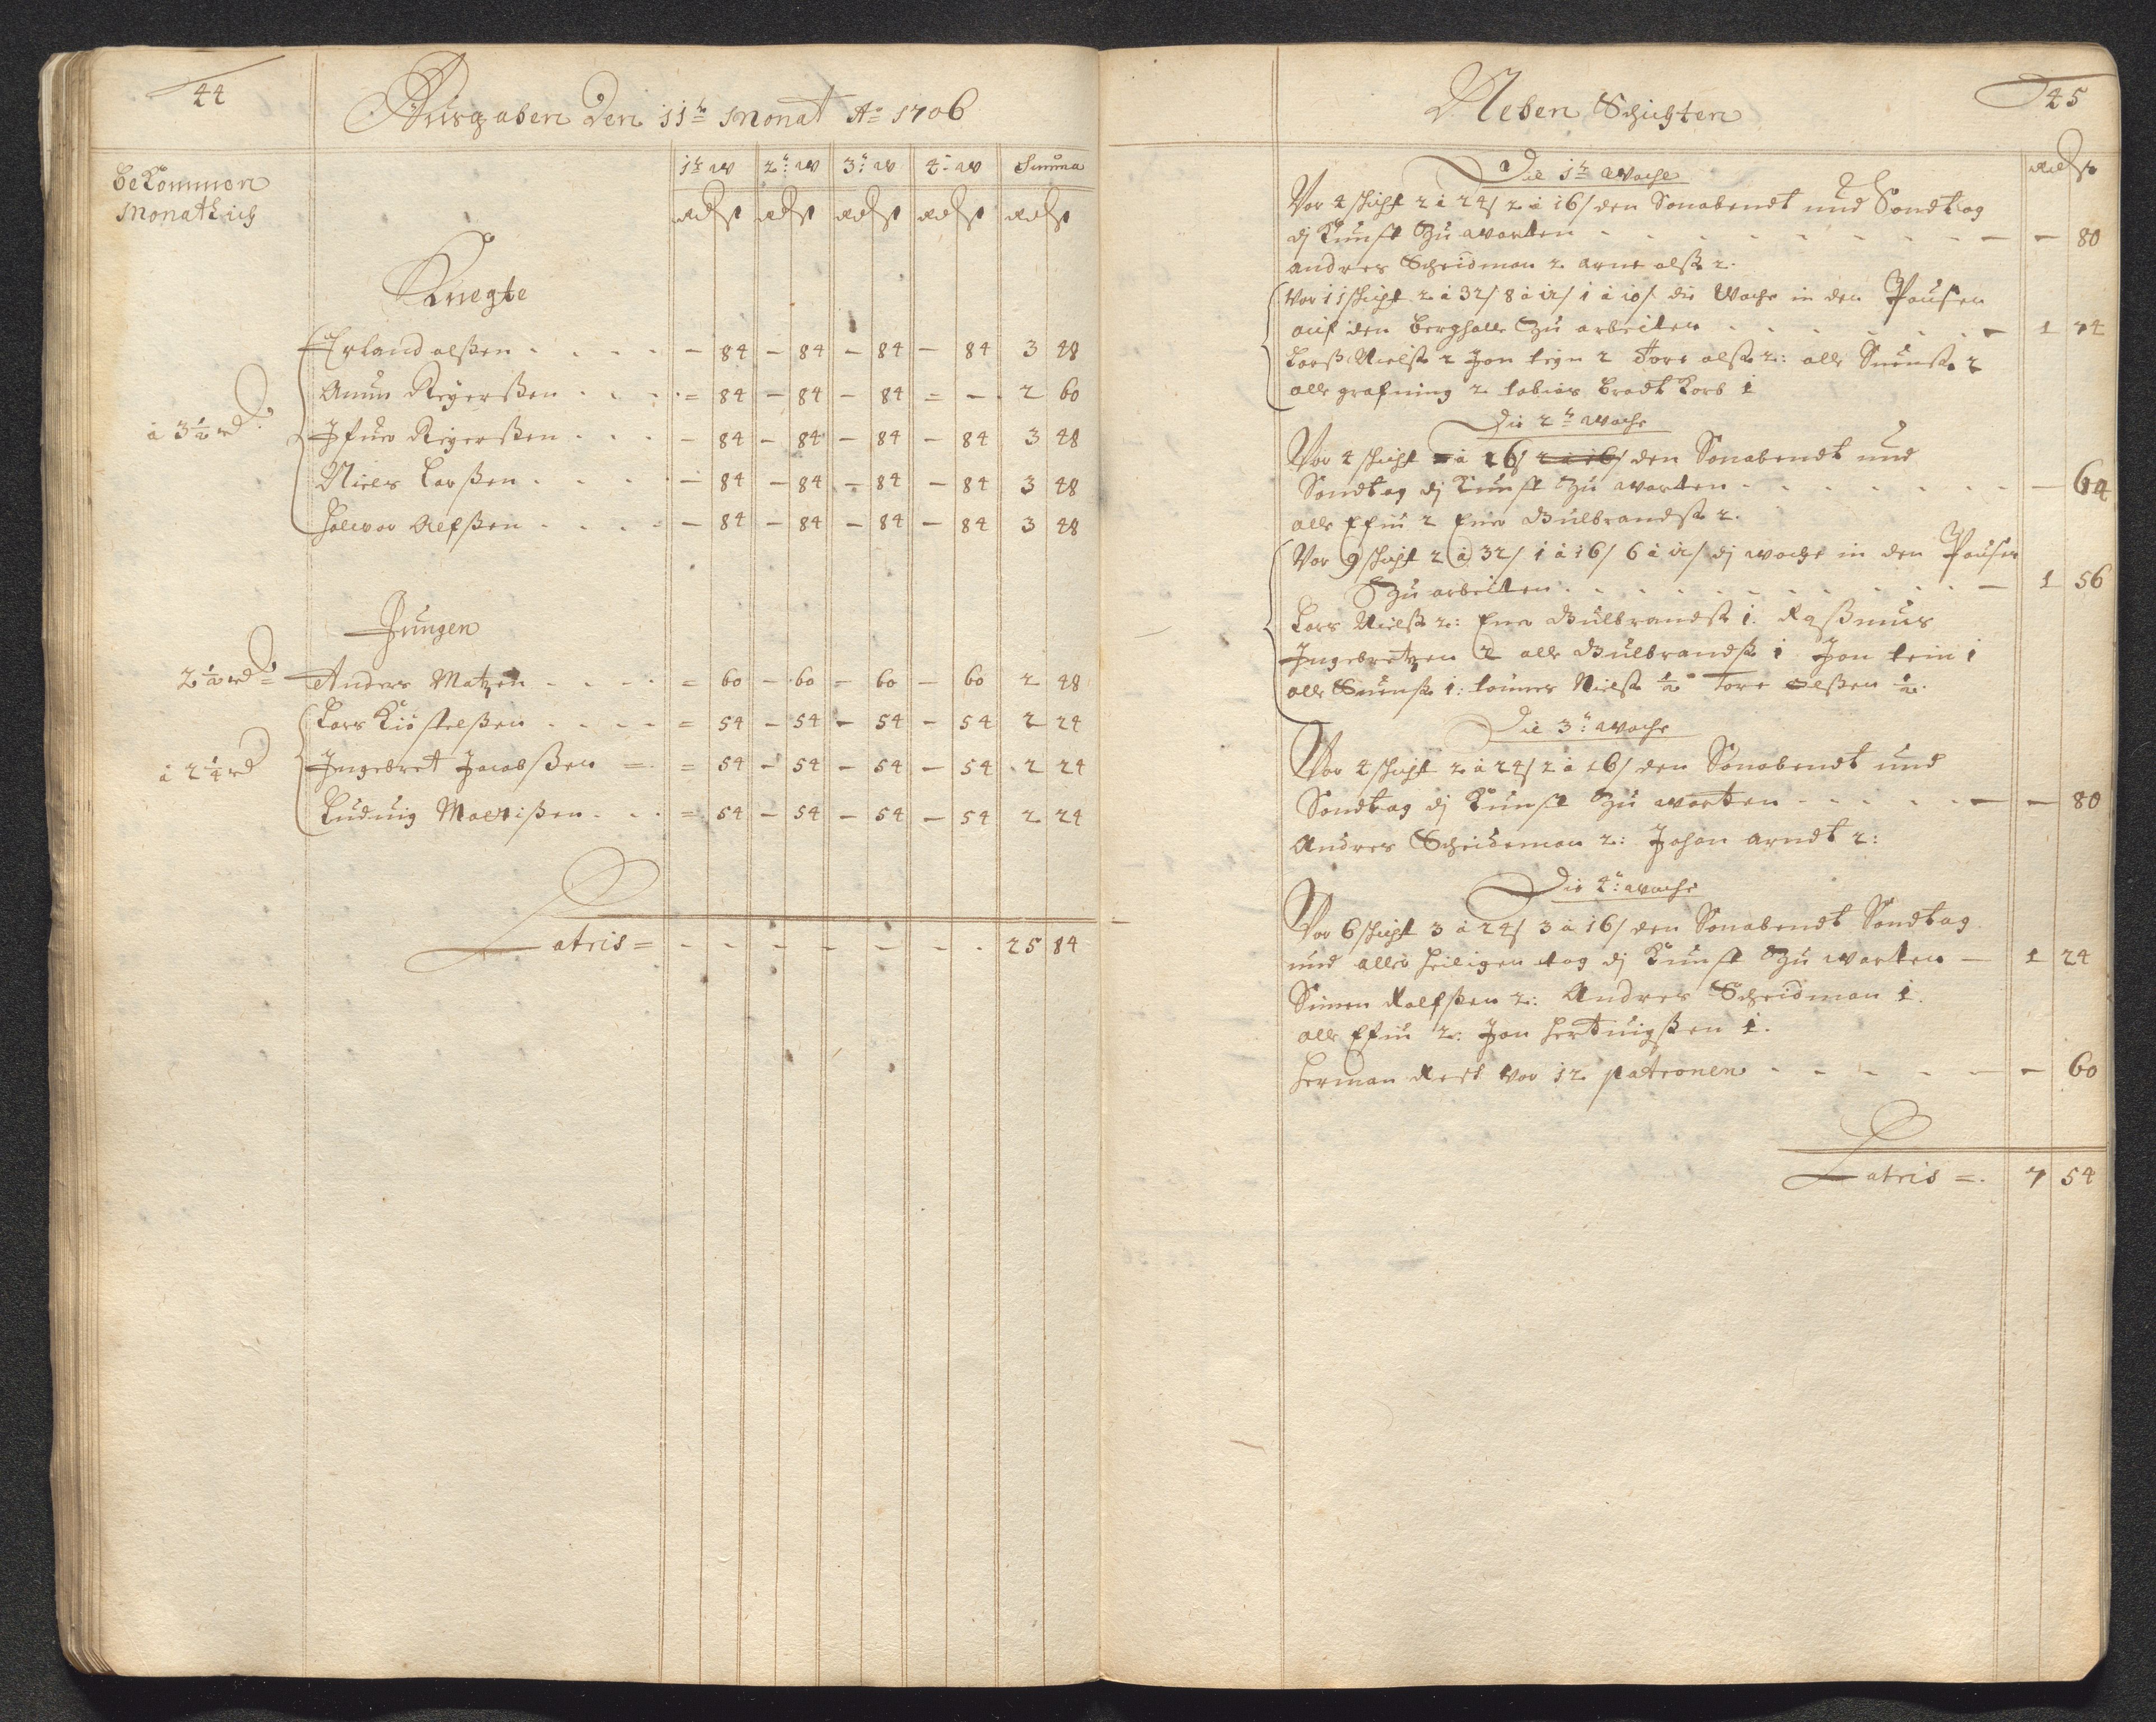 44
Ausgaben Den 11t Monat Ao 1706
bekommen
Monathlich
1t w 2t w 3t w 4t w Summa
Rd ß Rd ß Rd ß Rd ß Rd ß
Knegte
Erland olßen - 84 - 84 - 84 - 84 3 48
Amun Reyerßen - 84 - 84 - 84 - - 2 60
à 3 1/2 rd
Ifuer Reyerßen - 84 - 84 - 84 - 84 3 48
Niels Larßen - 84 - 84 - 84 - 84 3 48
Halvor Alfßen - 84 - 84 - 84 - 84 3 48
Jungen
2 1/2 rd Anders Matzen - 60 - 60 - 60 - 60 2 48
Lars Kiöstelßen - 54 - 54 - 54 - 54 2 24
à 2 1/4 rd Ingebret Jacobßen - 54 - 54 - 54 - 54 2 24
Ludvig Mortißen - 54 - 54 - 54 - 54 2 24
Latris = 25 84
Neben Schichten
45
Rd ß
Die 1t Woche
Vor 4 schicht 2 à 24/ 2 à 16/ den Sonabendt und Sondtag
dj Kunst Zu warten - 80
Andres Scheidman 2 arne olß 2.
Vor 11 schicht 2 à 32/ 8 à 12/ 1 à 10/ die Woche in den Pausen
auf den berghalle Zu arbeiten 1 74
Larß Nielß 2 Jon tein 2 Tore olß 2: olle Suenß 2
olle grafning 2 tobias bradt Korb 1
Die 2t Woche
Vor 4 schicht à 16/ 2 à 16/ den Sonabendt und
Sondtag dj Kunst Zu warten - 64
olle Efiu 2 Ener Gulbrandß 2.
Vor 9 schicht 2 à 32/ 1 à 16/ 6 à 12/ dj woche in den Pausen
Zu arbeiten 1 56
Lars Nielß 2: Ener Gulbrandß 1. Raßmus
Ingebretzen 2 olle Gulbrandß 1 Jon tein 1
olle Suenß 1: Nielß 1/2 Tore olßen 1/2.
Die 3t Woche
Vor 4 schicht 2 à 24/ 2 à 16/ den Sonabendt und
Sondtag dj Kunst Zu warten - 80
Andres Scheideman 2: Johan arndt 2:
Die 4t Woche
Vor 6 schicht 3 à 24/ 3 à 16/ den Sonabendt Sondtag
und aller heiligen tag dj Kunst Zu warten 1 24
Simen Rolfßen 2: Andres Scheidman 1.
olle Efiu 2: Jon Hertuigßen 1.
Herman Rest vor 12 patronen - 60
Latris = 7 54